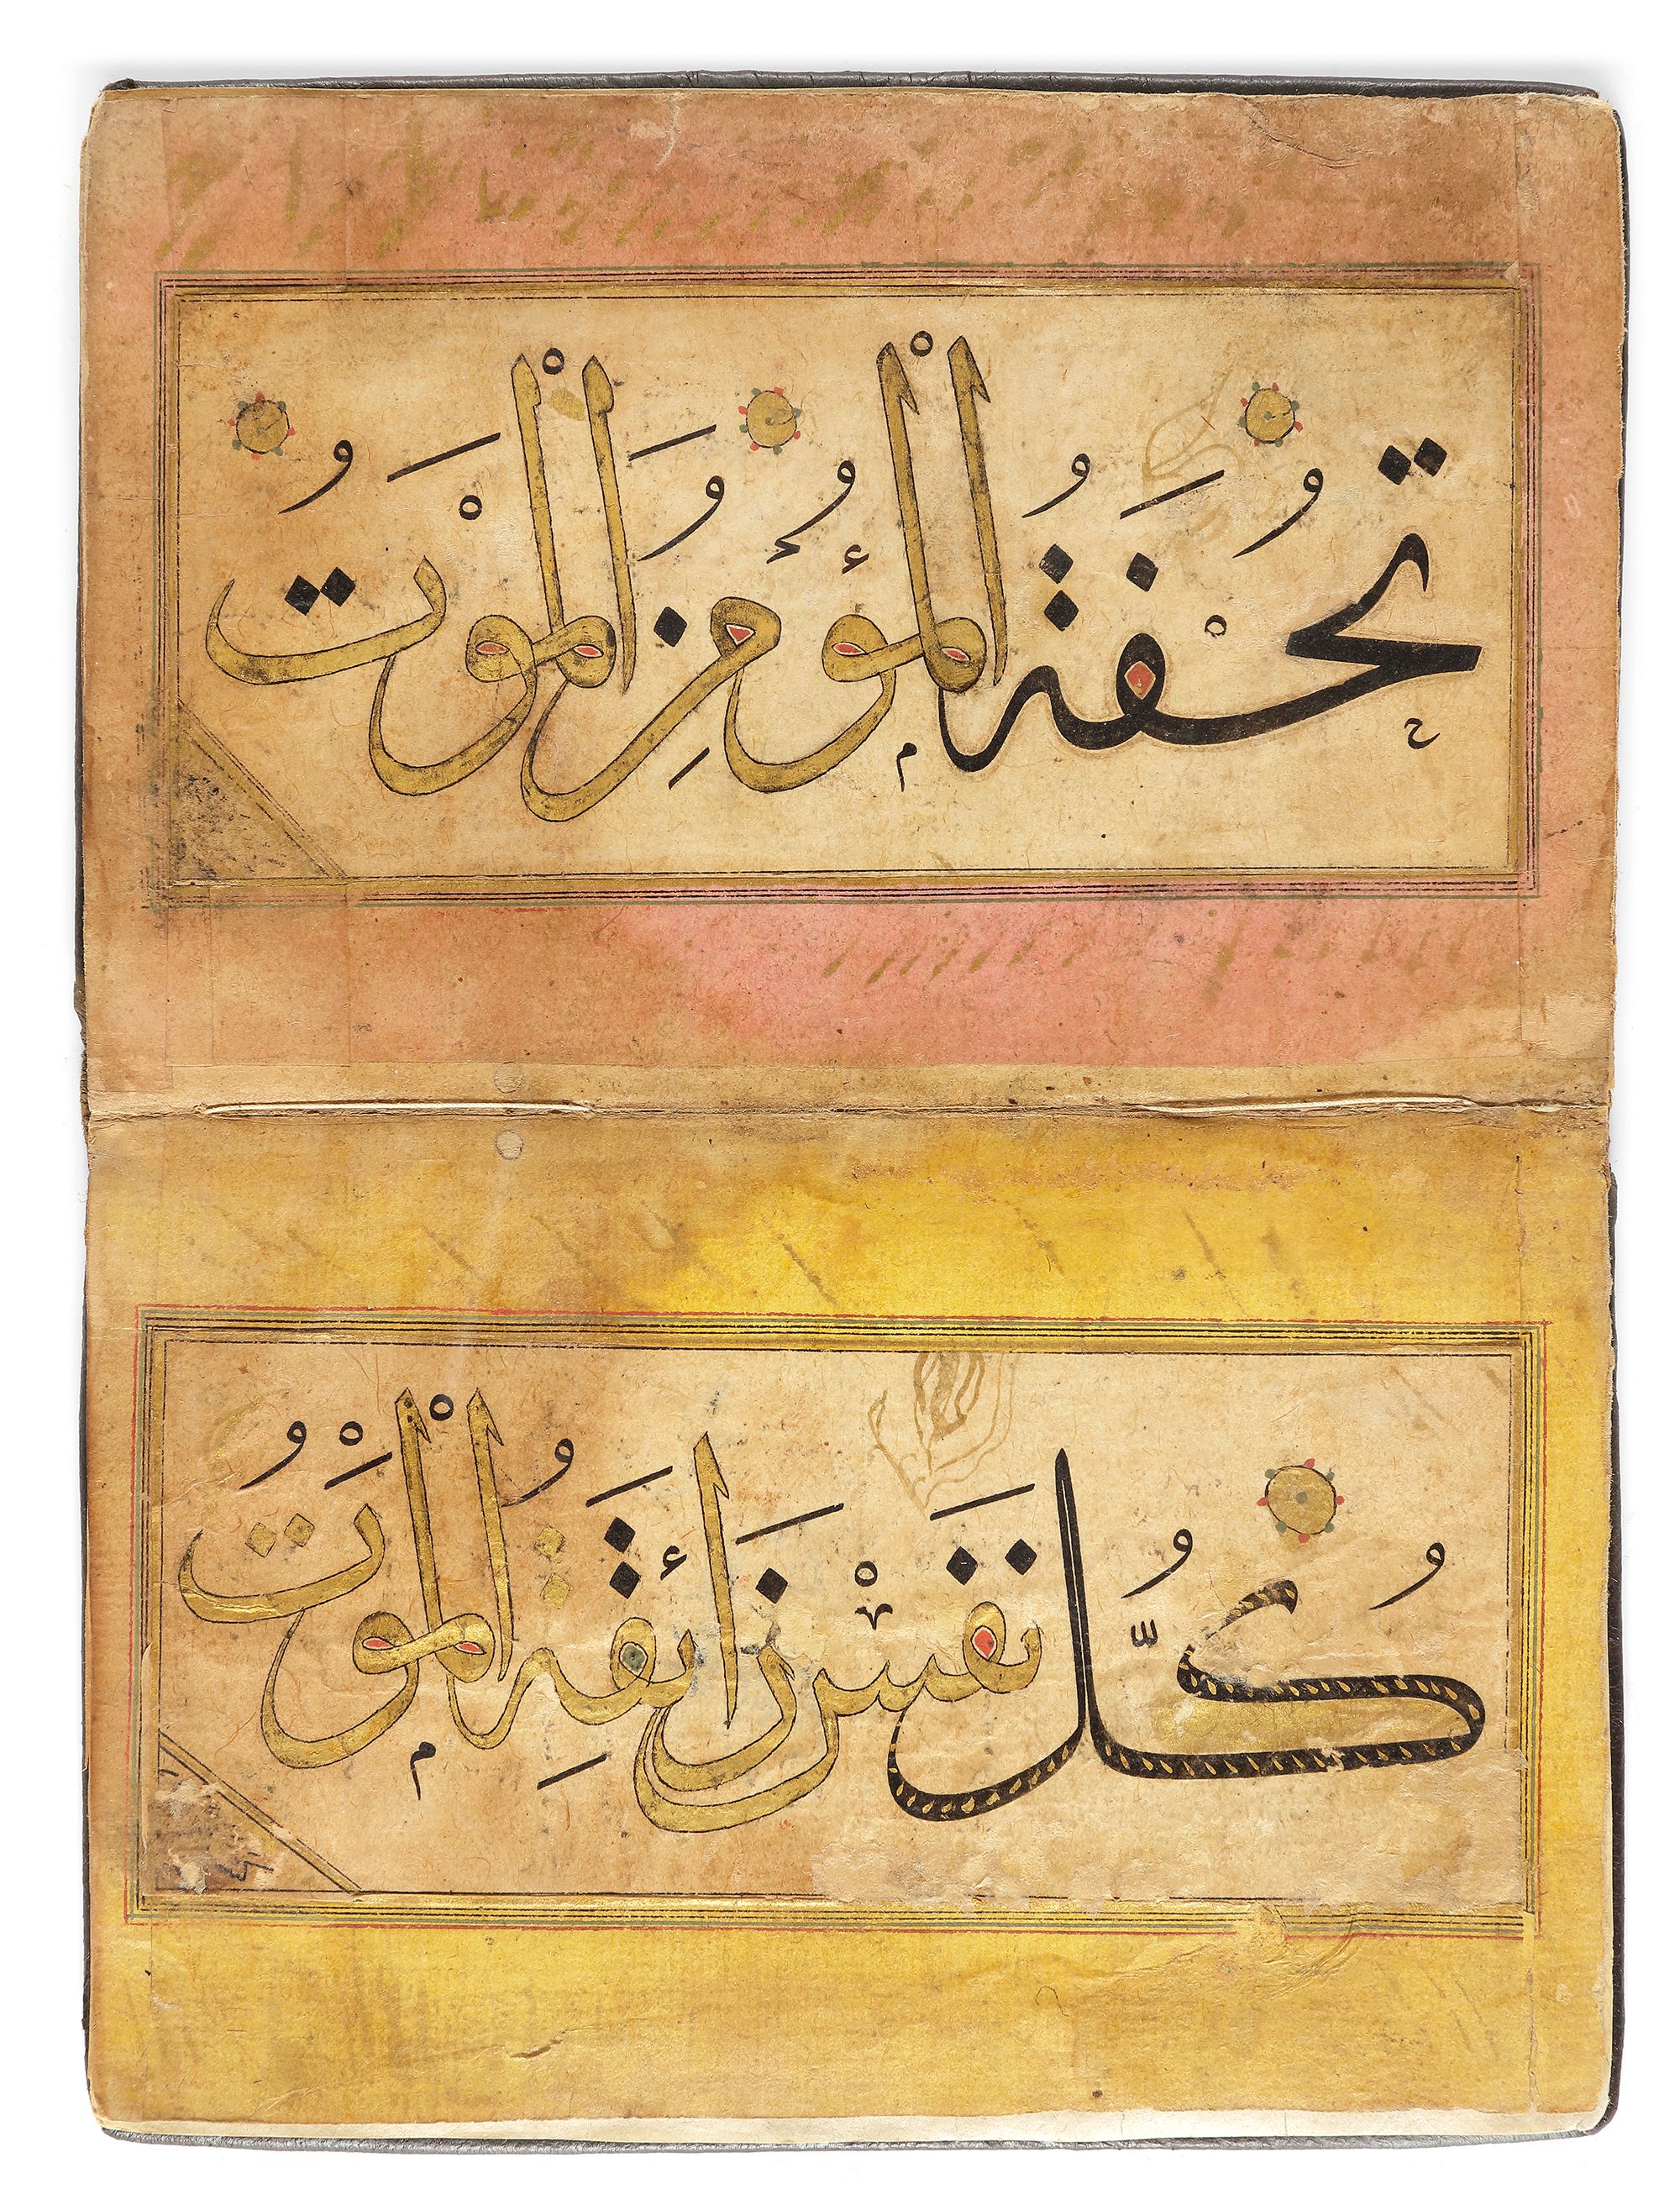 تحفة المؤمن الموت
كل نفس ذائقة الموت